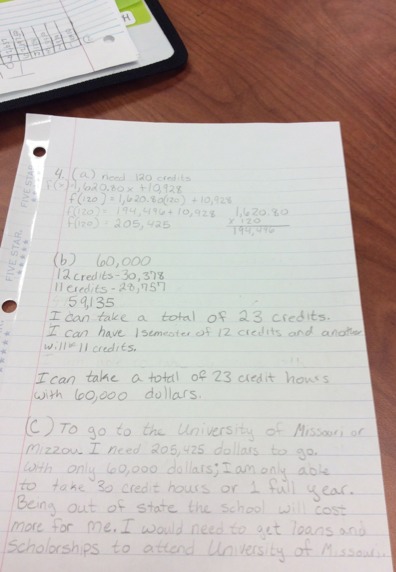 H
FIVE STAR
FIVE STAR
4. (a) need 120 credits
f(x)=1,620.80x +10,928
f(120)=1,620.80(120)+10,928
f(120)= 194,496+10,928
f(120)= 205,425
1,620.80
x 120
194,496
(b) 60,000
12 credits-30,378
11 credits-28,757
59,135
I can take a total of 23 credits.
I can have 1 semester of 12 credits and another
will 11 credits.
I can take a total of 23 credit hours
with 60,000 dollars.
(C) To go to the University of Missouri or
Mizzou. I need 205,425 dollars to go.
With only 60,000 dollars; I am only able
to take 30 credit hours or 1 full year.
Being out of state the school will cost
more for me. I would need to get loans and
scholorships to attend University of Missouri.